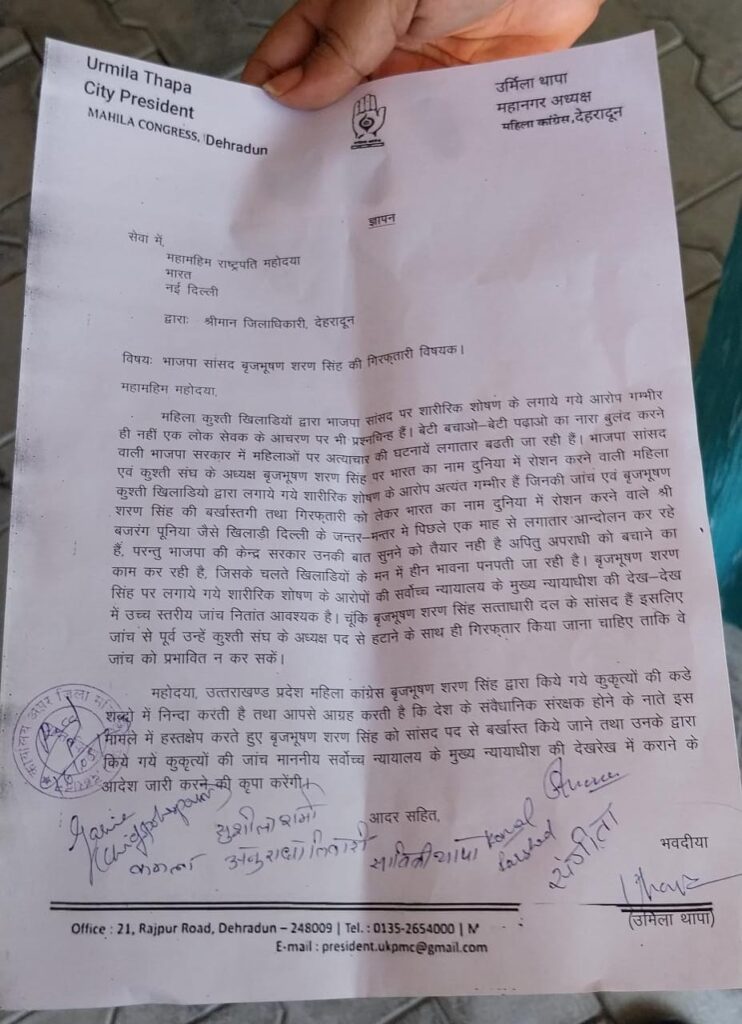 Urmila Thapa
City President
MAHILA CONGRESS, Dehradun
उर्मिला थापा
महानगर अध्यक्ष
महिला कांग्रेस, देहरादून
ज्ञापन
सेवा में,
महामहिम राष्ट्रपति महोदया
भारत
नई दिल्ली
द्वाराः श्रीमान जिलाधिकारी, देहरादून
विषयः भाजपा सांसद बृजभूषण शरण सिंह की गिरफ्तारी विषयक।
महामहिम महोदया,
महिला कुश्ती खिलाडियों द्वारा भाजपा सांसद पर शारीरिक शोषण के लगाये गये आरोप गम्भीर
ही नहीं एक लोक सेवक के आचरण पर भी प्रश्नचिन्ह हैं। बेटी बचाओ–बेटी पढ़ाओ का नारा बुलंद करने
वाली भाजपा सरकार में महिलाओं पर अत्याचार की घटनायें लगातार बढती जा रही हैं। भाजपा सांसद
एवं कुश्ती संघ के अध्यक्ष बृजभूषण शरण सिंह पर भारत का नाम दुनिया में रोशन करने वाली महिला
कुश्ती खिलाडियो द्वारा लगाये गये शारीरिक शोषण के आरोप अत्यंत गम्भीर हैं जिनकी जांच एवं बृजभूषण
शरण सिंह की बर्खास्तगी तथा गिरफ्तारी को लेकर भारत का नाम दुनिया में रोशन करने वाले श्री
बजरंग पूनिया जैसे खिलाड़ी दिल्ली के जन्तर–मन्तर मे पिछले एक माह से लगातार आन्दोलन कर रहे
हैं, परन्तु भाजपा की केन्द्र सरकार उनकी बात सुनने को तैयार नही है अपितु अपराधी को बचाने का
काम कर रही है, जिसके चलते खिलाडियों के मन में हीन भावना पनपती जा रही है। बृजभूषण शरण
सिंह पर लगाये गये शारीरिक शोषण के आरोपों की सर्वोच्च न्यायालय के मुख्य न्यायाधीश की देख–देख
में उच्च स्तरीय जांच नितांत आवश्यक है। चूंकि बृजभूषण शरण सिंह सत्ताधारी दल के सांसद हैं इसलिए
जांच से पूर्व उन्हें कुश्ती संघ के अध्यक्ष पद से हटाने के साथ ही गिरफ्तार किया जाना चाहिए ताकि वे
जांच को प्रभावित न कर सकें।
महोदया, उत्तराखण्ड प्रदेश महिला कांग्रेस बृजभूषण शरण सिंह द्वारा किये गये कुकृत्यों की कडे
शब्दो में निन्दा करती है तथा आपसे आग्रह करती है कि देश के संवैधानिक संरक्षक होने के नाते इस
मामले में हस्तक्षेप करते हुए बृजभूषण शरण सिंह को सांसद पद से बर्खास्त किये जाने तथा उनके द्वारा
किये गये कुकृत्यों की जांच माननीय सर्वोच्च न्यायालय के मुख्य न्यायाधीश की देखरेख में कराने के
आदेश जारी करने की कृपा करेंगी।
आदर सहित,
सुशीला शर्मा
अनुराधा तिवारी
सावित्री थापा
Komal
संगीता
कमला
भवदीया
(उर्मिला थापा)
Office : 21, Rajpur Road, Dehradun – 248009 | Tel. : 0135-2654000 | M
E-mail : president.ukpmc@gmail.com